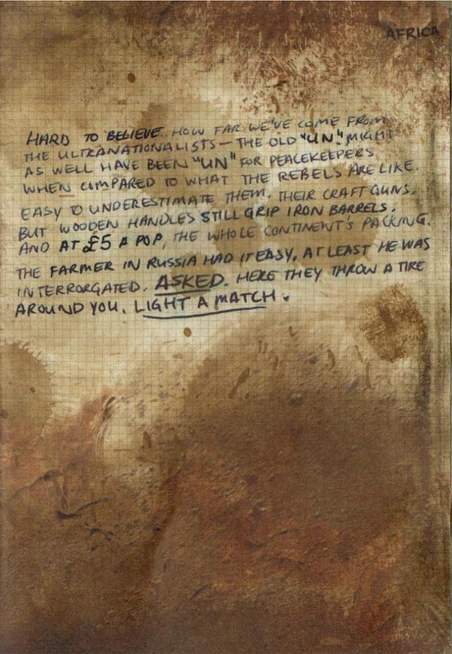 AFRICA
HARD TO BELIEVE HOW FAR WE'VE COME FROM
THE ULTRANATIONALISTS — THE OLD "UN" MIGHT
AS WELL HAVE BEEN "UN" FOR PEACEKEEPERS
WHEN COMPARED TO WHAT THE REBELS ARE LIKE.
EASY TO UNDERESTIMATE THEM. THEIR CRAFT GUNS.
BUT WOODEN HANDLES STILL GRIP IRON BARRELS.
AND AT £5 A POP, THE WHOLE CONTINENT'S PACKING.
THE FARMER IN RUSSIA HAD IT EASY, AT LEAST HE WAS
INTERRORGATED. ASKED. HERE THEY THROW A TIRE
AROUND YOU. LIGHT A MATCH.